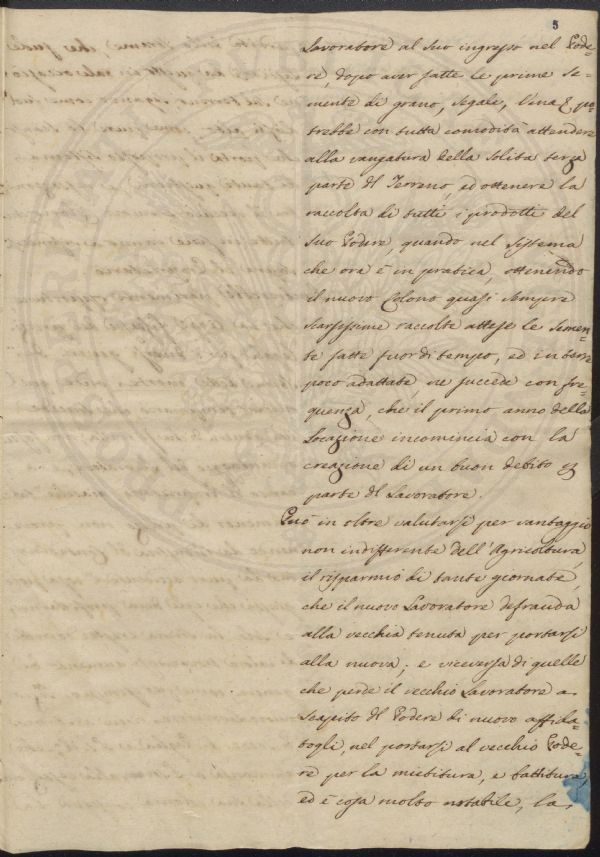 5
Lavoratore al suo ingresso nel Pode-
re, dopo aver fatte le prime Se-
mente di grano, segale, lina & po-
trebbe con tutta comodità attendere
alla vangatura della solita terza
parte del Terreno, ed ottenere la
raccolta di tutti i prodotti del
suo Podere, quando nel sistema
che ora è in pratica, ottenendo
il nuovo Colono quasi sempre
scarsissime raccolte attese le Semen-
te fatte fuor di tempo, ed in terre
poco adattate ne succede con fre-
quenza, che il primo anno della
Locazione incomincia con la
creazione di un buon debito
parte del Lavoratore.
Può in oltre valutarsi per vantaggio
non indifferente dell'Agricoltura,
il risparmio di tante giornate,
che il nuovo Lavoratore defrauda
alla vecchia tenuta per portarsi
alla nuova; e viceversa di quelle
che perde il vecchio Lavoratore a
scapito del Podere di nuovo affida-
togli, nel portarsi al vecchio Pode-
re per la mietitura, e battitura,
ed è cosa molto notabile, la